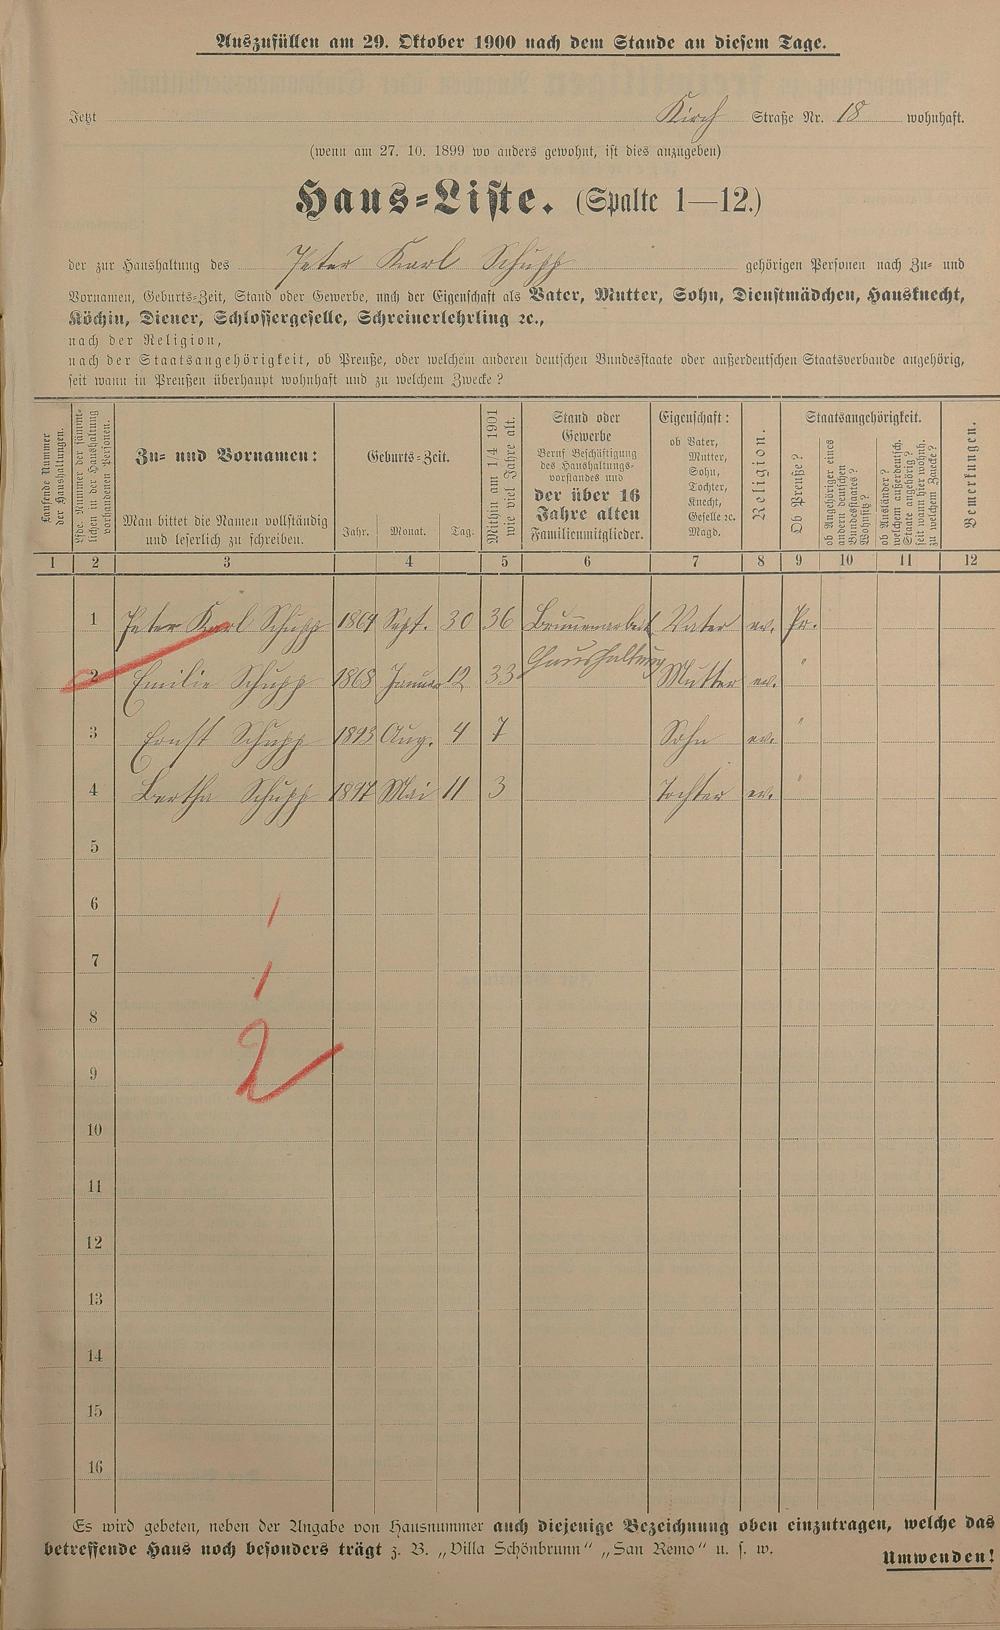 Auszufüllen am 29. Oktober 1900 nach dem Stande an diesem Tage.
Jetzt Kirch Straße Nr. 18 wohnhaft.
(wenn am 27. 10. 1899 wo anders gewohnt, ist dies anzugeben)
Haus-Liste. (Spalte 1—12.)
der zur Haushaltung des Peter Karl Schupp gehörigen Personen nach Zu- und
Vornamen, Geburts-Zeit, Stand oder Gewerbe, nach der Eigenschaft als Vater, Mutter, Sohn, Dienstmädchen, Hausknecht,
Köchin, Diener, Schlossergeselle, Schreinerlehrling ꝛc.,
nach der Religion,
nach der Staatsangehörigkeit, ob Preuße, oder welchem anderen deutschen Bundesstaate oder außerdeutschen Staatsverbande angehörig,
seit wann in Preußen überhaupt wohnhaft und zu welchem Zwecke?
Laufende Nummer
der Haushaltungen.
Lfde. Nummer der sämmt-
lichen in der Haushaltung
vorhandenen Personen.
Zu- und Vornamen:
Man bittet die Namen vollständig
und leserlich zu schreiben.
Geburts-Zeit.
Jahr. Monat. Tag.
Mithin am 1/4 1901
wie viel Jahre alt.
Stand oder
Gewerbe
Beruf Beschäftigung
des Haushaltungs-
vorstandes und
der über 16
Jahre alten
Familienmitglieder.
Eigenschaft:
ob Vater,
Mutter,
Sohn,
Tochter,
Knecht,
Geselle ꝛc.
Magd.
Religion.
Staatsangehörigkeit.
Ob Preuße?
ob Angehöriger eines
andern deutschen
Bundesstaates?
Wohnitz?
ob Ausländer?
welchem außerdeutsch.
Staate angehörig?
seit wann hier wohnh.
zu welchem Zwecke?
Bemerkungen.
1 2 3 4 5 6 7 8 9 10 11 12
1 Peter Karl Schupp 1864 Sept. 30 36 Brunnenarbeit. Vater ev. Pr.
2 Emilie Schupp 1868 Januar 12 33 Haushaltung Mutter ev. "
3 Ernst Schupp 1893 Aug. 4 7 Sohn ev. "
4 Bertha Schupp 1897 Mai 11 3 Tochter ev. "
5
6
7
8
2
9
10
11
12
13
14
15
16
Es wird gebeten, neben der Angabe von Hausnummer auch diejenige Bezeichnung oben einzutragen, welche das
betreffende Haus noch besonders trägt z. B. „Villa Schönbrunn" „San Remo" u. s. w.
Umwenden!